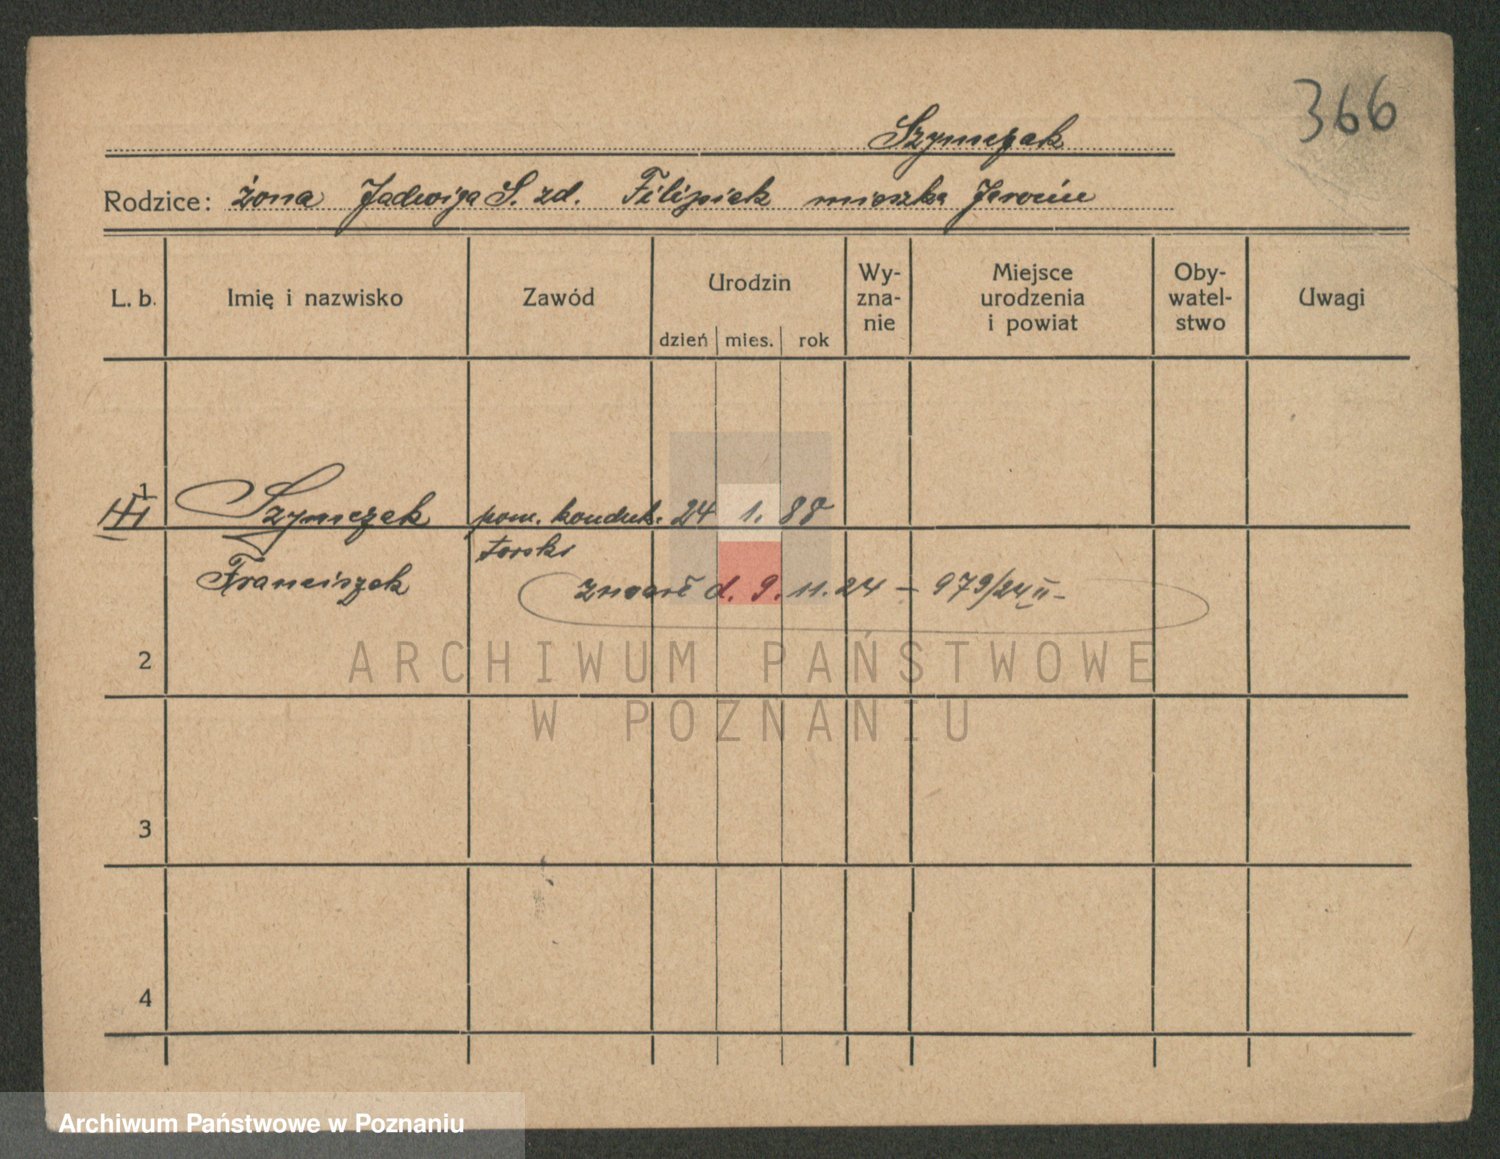 366
Szymczak
Rodzice: żona Jadwiga S. zd. Filipiak mieszka Jarocin
L. b. Imię i nazwisko Zawód Urodzin Wy-zna-nie Miejsce urodzenia i powiat Oby-watel-stwo Uwagi
dzień mies. rok
1 Szymczak pom. konduk. 24 1. 88
torski
Franciszek
zmarł d. 9. 11. 24 – 979/24 II –
2
3
4
ARCHIWUM PAŃSTWOWE
W POZNANIU
Archiwum Państwowe w Poznaniu